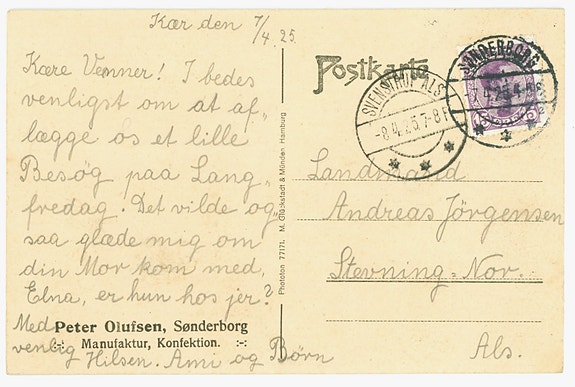 Kær den 7/4. 25.
Kære Venner! I bedes
venligst om at af„
lægge os et lille
Besøg paa Lang„
fredag. Det vilde og„
saa glæde mig om
din Mor kom med,
Elna, er hun hos jer?
Med
venlig Hilsen. Ami og Børn
Peter Olufsen, Sønderborg
:-: Manufaktur, Konfektion. :-:
Phototon 77171. M. Glückstadt & Münden, Hamburg
Postkarte
SVENSTRUP ALS
-8.4.25.7-8F
SØNDERBORG
Landmand
Andreas Jörgensen
Stevning-Nor.
Als.